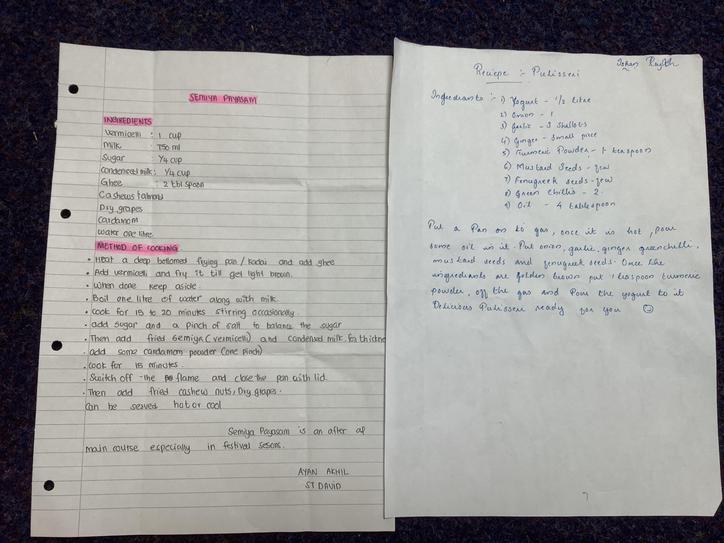 SEMIYA PAYASAM
INGREDIENTS
Vermicelli : 1 cup
Milk : 750 ml
Sugar : 1/4 cup
condensed milk : 1/4 cup
Ghee : 2 tbl spoon
Cashews
Dry grapes
cardamom
water one litre
METHOD OF COOKING
• Heat a deep bottomed frying pan / kadai and add ghee
• Add vermicelli and fry it till get light brown.
• When done keep aside.
• Boil one litre of water along with milk.
• cook for 15 to 20 minutes stirring occasionally.
• add sugar and a pinch of salt to balance the sugar
• Then add fried Semiya (vermicelli) and condensed milk. for
• add some cardamom powder (one pinch)
• Cook for 15 minutes.
• Switch off the flame and close the pan with lid.
• Then add fried cashew nuts, Dry grapes.
Can be served hot or cool
Semiya Payasam is an after
main course especially in festival sesons.
AYAN AKHIL
ST DAVID
Reciepe :- Pulisseri
Ingrediants :- 1) Yogurt - 1/2 litre
2) Onion - 1
3) Garlic - 3 shallots
4) Ginger - Small piece
5) Turmeric Powder - 1 teaspoon
6) Mustard Seeds - few
7) Fenugreek seeds - few
8) Green chillis - 2
9) Oil - 4 tablespoon
Put a Pan on to gas, once it is hot, pour
some oil in it. Put onion, garlic, ginger greenchilli,
mustard seeds and fenugreek seeds. Once the
ingrediants are golden brown put 1 teaspoon turmeric
powder, off the gas and Pour the yogurt to it
Delicious Pulisseri ready for you